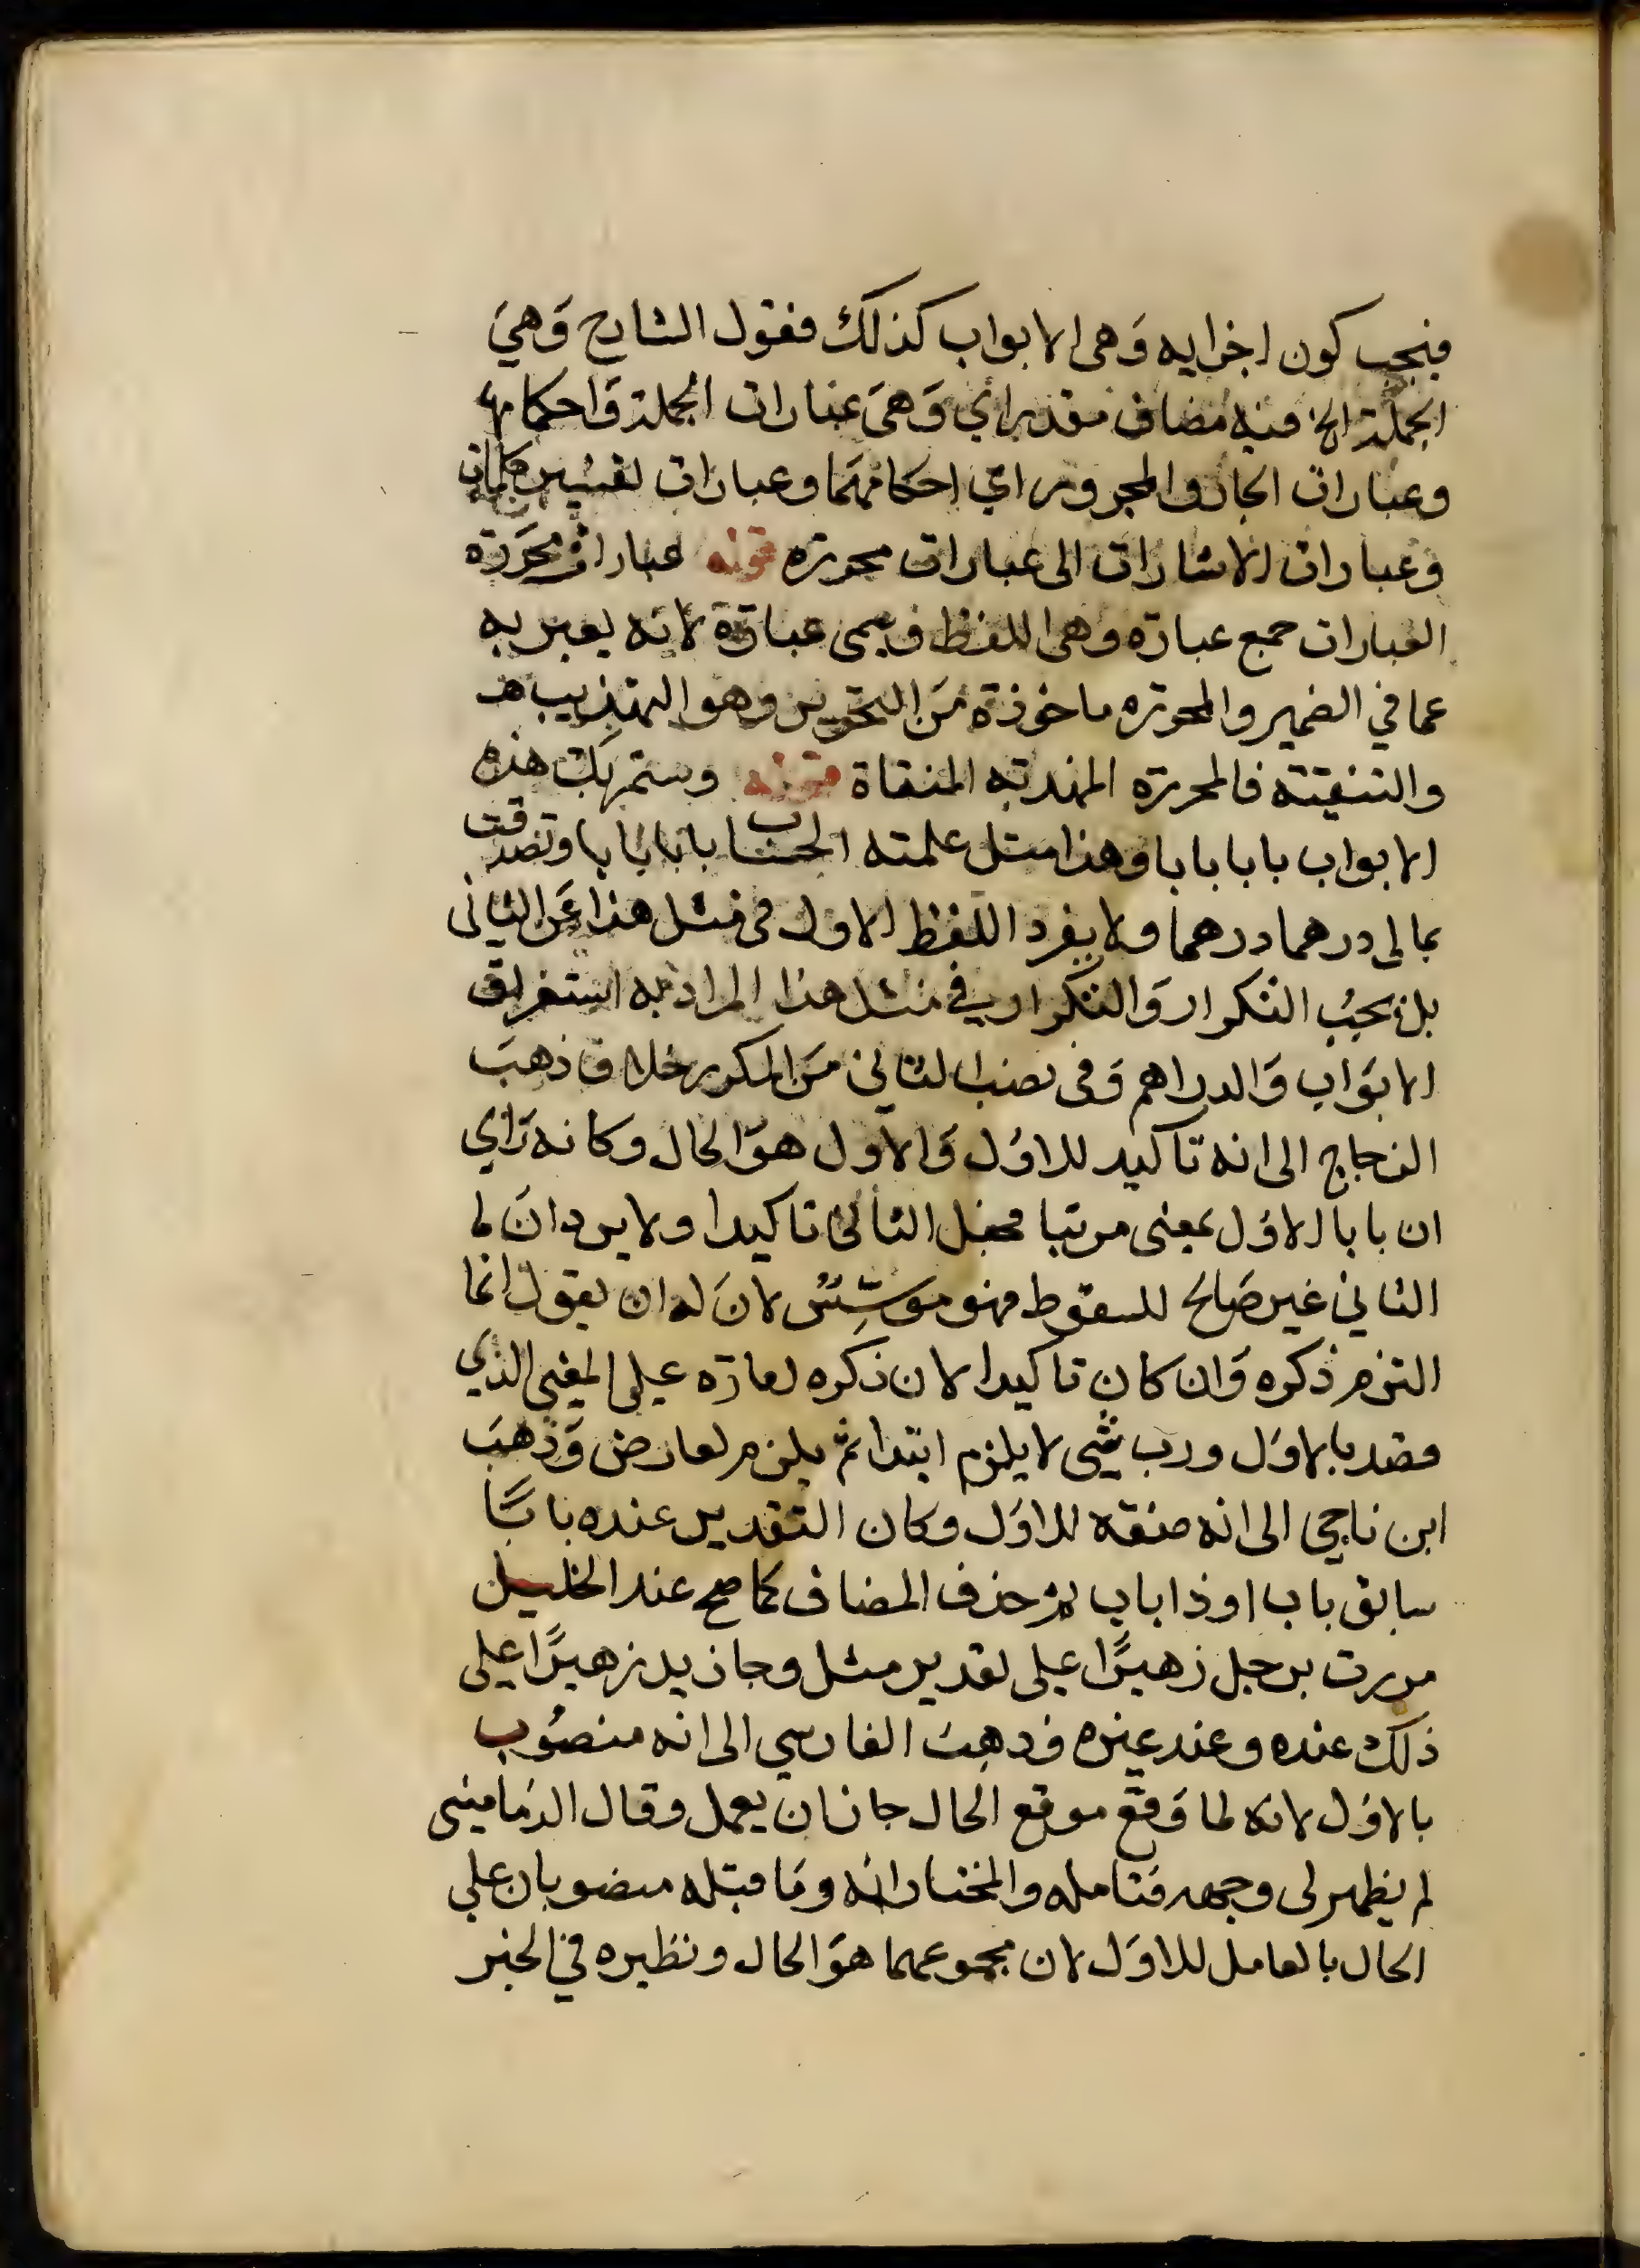 فيجب كون اجزايه وهى الابواب كذلك فقول الشارح وهي
الجملة الخ فيه مضاف مقدر اي وهي عبارات الجملة واحكامها
وعبارات الجار والمجرور اي احكامهما وعبارات تفسير كلمات
وعبارات الاشارات الى عبارات محررة قوله عبارات محررة
العبارات جمع عبارة وهى اللفظ ويسمى عبارة لانه يعبر به
عما في الضمير والمحررة ماخوذة من التحرير وهو التهذيب
والتنقية فالمحررة المهذبة المنقاة قوله وستمر بك هذه
الابواب بابا بابا وهذا مثل علمته الحساب بابا بابا وتصدقت
بمالى درهما درهما ولا يفرد اللفظ الاول فى مثل هذا عن الثانى
بل يجب التكرار والتكرار في مثل هذا المراد به استغراق
الابواب والدراهم وفى نصب الثاني من المكرر خلاف ذهب
الزجاج الى انه تاكيد للاول والاول هو الحال وكانه راي
ان بابا الاول بمعنى مرتبا فجعل الثانى تاكيدا ولا يرد ان
الثاني غير صالح للسقوط فهو موسس لان له ان يقول انما
التزم ذكره وان كان تاكيدا لان ذكره امارة على المعنى الذي
قصد بالاول ورب شي لا يلزم ابتدا ثم يلزم لعارض وذهب
ابن ناجي الى انه صفة للاول وكان التقدير عنده بابًا
سابق باب او ذا باب ثم حذف المضاف كما صح عند الخليل
مررت برجل زهيرًا على تقدير مثل وجا زيد زهيرًا على
ذلك عنده وعند غيره وذهب الفارسي الى انه منصوب
بالاول لانه لما وقع موقع الحال جاز ان يعمل وقال الدماميني
لم يظهر لى وجهه فتامله والمختار انه وما قبله منصوبان على
الحال بالعامل للاول لان مجموعهما هو الحال ونظيره في الخبر